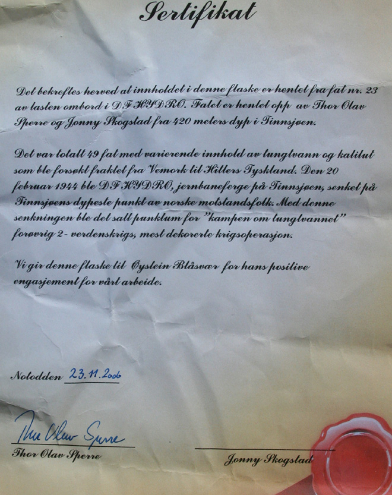 Sertifikat
Det bekreftes herved at innholdet i denne flaske er hentet fra fat nr. 23
av lasten ombord i D.F.HYDRO. Fatet er hentet opp av Thor Olav
Sperre og Jonny Skogstad fra 420 meters dyp i Tinnsjøen.
Det var totalt 49 fat med varierende innhold av tungtvann og kalilut
som ble forsøkt fraktet fra Vemork til Hitlers Tyskland. Den 20
februar 1944 ble D.F.HYDRO, jernbaneferge på Tinnsjøen, senket på
Tinnsjøens dypeste punkt av norske motstandsfolk. Med denne
senkningen ble det satt punktum for "kampen om tungtvannet"
forøvrig 2- verdenskrigs, mest dekorerte krigsoperasjon.
Vi gir denne flaske til Øystein Blåsvær for hans positive
engasjement for vårt arbeide.
Notodden 23.11.2006
Thor Olav Sperre
Thor Olav Sperre Jonny Skogstad